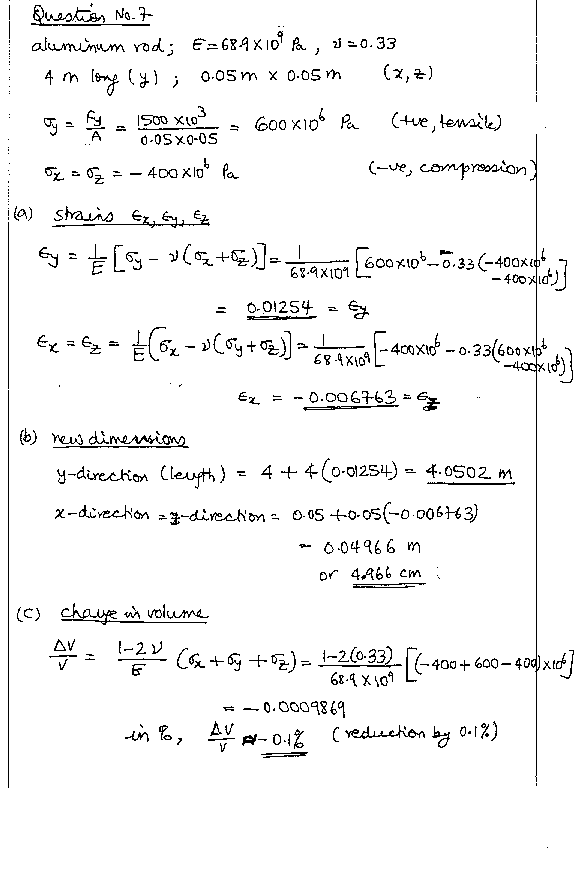 Question No. 7
aluminum rod; E = 68.9 × 10⁹ Pa, ν = 0.33
4 m long (y); 0.05 m × 0.05 m (x, z)
σy = Fy/A = 1500 × 10³/0.05 × 0.05 = 600 × 10⁶ Pa (+ve, tensile)
σx = σz = - 400 × 10⁶ Pa (-ve, compression)
(a) strains εx, εy, εz
εy = 1/E [σy - ν(σx + σz)] = 1/68.9 × 10⁹ [600 × 10⁶ - 0.33(-400 × 10⁶ - 400 × 10⁶)]
= 0.01254 = εy
εx = εz = 1/E [σx - ν(σy + σz)] = 1/68.9 × 10⁹ [-400 × 10⁶ - 0.33(600 × 10⁶ - 400 × 10⁶)]
εx = - 0.006763 = εz
(b) new dimensions
y-direction (length) = 4 + 4(0.01254) = 4.0502 m
x-direction = z-direction = 0.05 + 0.05(-0.006763)
= 0.04966 m
or 4.966 cm
(c) change in volume
ΔV/V = 1-2ν/E (σx + σy + σz) = 1-2(0.33)/68.9 × 10⁹ [(-400 + 600 - 400) × 10⁶]
= - 0.0009869
in %, ΔV/V ≈ - 0.1% (reduction by 0.1%)